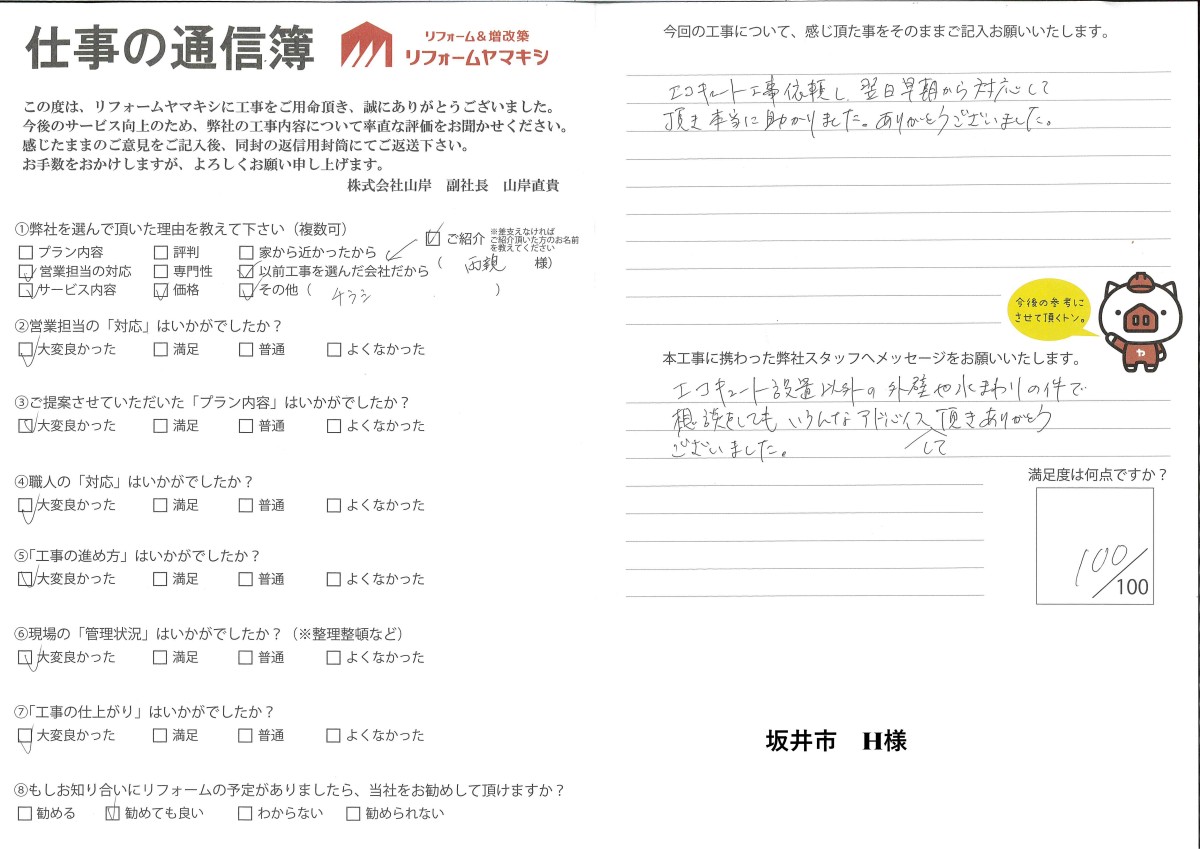 仕事の通信簿
リフォーム&増改築
リフォームヤマキシ
この度は、リフォームヤマキシに工事をご用命頂き、誠にありがとうございました。
今後のサービス向上のため、弊社の工事内容について率直な評価をお聞かせください。
感じたままのご意見をご記入後、同封の返信用封筒にてご返送下さい。
お手数をおかけしますが、よろしくお願い申し上げます。
株式会社山岸 副社長 山岸直貴
①弊社を選んで頂いた理由を教えて下さい（複数可）
□プラン内容 □評判 □家から近かったから
☑ご紹介 ※差支えなければ
ご紹介頂いた方のお名前
を教えてください
（ 両親 様）
☑営業担当の対応 □専門性 ☑以前工事を選んだ会社だから
☑サービス内容 ☑価格 ☑その他（ チラシ ）
②営業担当の「対応」はいかがでしたか？
☑大変良かった □満足 □普通 □よくなかった
③ご提案させていただいた「プラン内容」はいかがでしたか？
☑大変良かった □満足 □普通 □よくなかった
④職人の「対応」はいかがでしたか？
☑大変良かった □満足 □普通 □よくなかった
⑤「工事の進め方」はいかがでしたか？
☑大変良かった □満足 □普通 □よくなかった
⑥現場の「管理状況」はいかがでしたか？（※整理整頓など）
☑大変良かった □満足 □普通 □よくなかった
⑦「工事の仕上がり」はいかがでしたか？
☑大変良かった □満足 □普通 □よくなかった
⑧もしお知り合いにリフォームの予定がありましたら、当社をお勧めして頂けますか？
□勧める ☑勧めても良い □わからない □勧められない
今回の工事について、感じ頂た事をそのままご記入お願いいたします。
エコキュート工事依頼し、翌日早朝から対応して
頂き本当に助かりました。ありがとうございました。
今後の参考に
させて頂くトン。
カ
本工事に携わった弊社スタッフへメッセージをお願いいたします。
エコキュート設置以外の外壁や水まわりの件で
相談をしてもいろんなアドバイス頂きありがとう
して
ございました。
満足度は何点ですか？
100/100
坂井市 H様